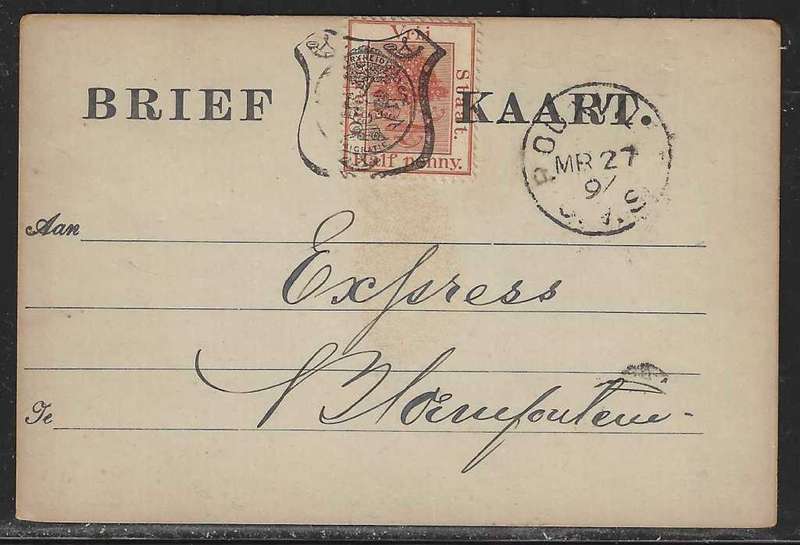 Vrij
BRIEF KAART.
Staat.
Half penny.
MR 27
91
Aan
Express
Te
Bloemfontein